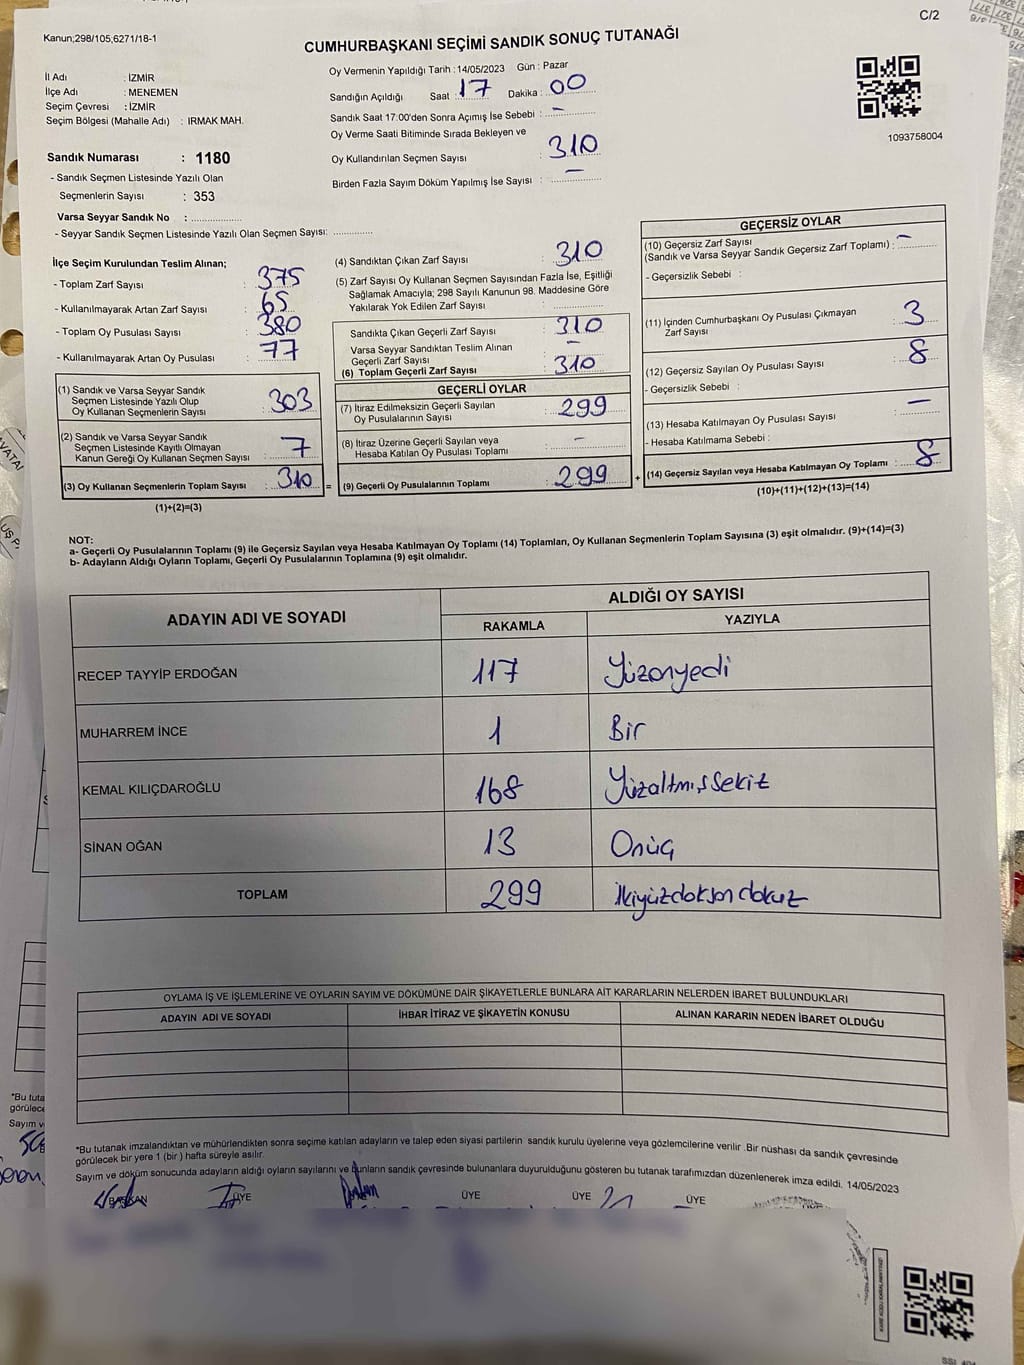 C/2
Kanun;298/105;6271/18-1
CUMHURBAŞKANI SEÇİMİ SANDIK SONUÇ TUTANAĞI
İl Adı : İZMİR
İlçe Adı : MENEMEN
Seçim Çevresi : İZMİR
Seçim Bölgesi (Mahalle Adı) : IRMAK MAH.
Sandık Numarası : 1180
- Sandık Seçmen Listesinde Yazılı Olan
Seçmenlerin Sayısı : 353
Varsa Seyyar Sandık No : ....................
- Seyyar Sandık Seçmen Listesinde Yazılı Olan Seçmen Sayısı: ...............
Oy Vermenin Yapıldığı Tarih : 14/05/2023 Gün : Pazar
Sandığın Açıldığı Saat : 17 Dakika : 00
Sandık Saat 17.00'den Sonra Açımış İse Sebebi : -
Oy Verme Saati Bitiminde Sırada Bekleyen ve
Oy Kullandırılan Seçmen Sayısı : 310
Birden Fazla Sayım Döküm Yapılmış İse Sayısı : -
1093758004
İlçe Seçim Kurulundan Teslim Alınan;
- Toplam Zarf Sayısı : 375
- Kullanılmayarak Artan Zarf Sayısı : 65
- Toplam Oy Pusulası Sayısı : 380
- Kullanılmayarak Artan Oy Pusulası : 77
(1) Sandık ve Varsa Seyyar Sandık
Seçmen Listesinde Yazılı Olup
Oy Kullanan Seçmenlerin Sayısı : 303
(2) Sandık ve Varsa Seyyar Sandık
Seçmen Listesinde Kayıtlı Olmayan
Kanun Gereği Oy Kullanan Seçmen Sayısı : 7
(3) Oy Kullanan Seçmenlerin Toplam Sayısı : 310
(1)+(2)=(3)
(4) Sandıktan Çıkan Zarf Sayısı : 310
(5) Zarf Sayısı Oy Kullanan Seçmen Sayısından Fazla İse, Eşitliği
Sağlamak Amacıyla; 298 Sayılı Kanunun 98. Maddesine Göre
Yakılarak Yok Edilen Zarf Sayısı :
Sandıkta Çıkan Geçerli Zarf Sayısı : 310
Varsa Seyyar Sandıktan Teslim Alınan
Geçerli Zarf Sayısı : -
(6) Toplam Geçerli Zarf Sayısı : 310
GEÇERLİ OYLAR
(7) İtiraz Edilmeksizin Geçerli Sayılan
Oy Pusulalarının Sayısı : 299
(8) İtiraz Üzerine Geçerli Sayılan veya
Hesaba Katılan Oy Pusulası Toplamı : -
= (9) Geçerli Oy Pusulalarının Toplamı : 299
GEÇERSİZ OYLAR
(10) Geçersiz Zarf Sayısı
(Sandık ve Varsa Seyyar Sandık Geçersiz Zarf Toplamı) : -
- Geçersizlik Sebebi :
(11) İçinden Cumhurbaşkanı Oy Pusulası Çıkmayan
Zarf Sayısı : 3
(12) Geçersiz Sayılan Oy Pusulası Sayısı : 8
- Geçersizlik Sebebi :
(13) Hesaba Katılmayan Oy Pusulası Sayısı : -
- Hesaba Katılmama Sebebi :
+ (14) Geçersiz Sayılan veya Hesaba Katılmayan Oy Toplamı : 8
(10)+(11)+(12)+(13)=(14)
NOT:
a- Geçerli Oy Pusulalarının Toplamı (9) ile Geçersiz Sayılan veya Hesaba Katılmayan Oy Toplamı (14) Toplamları, Oy Kullanan Seçmenlerin Toplam Sayısına (3) eşit olmalıdır. (9)+(14)=(3)
b- Adayların Aldığı Oyların Toplamı, Geçerli Oy Pusulalarının Toplamına (9) eşit olmalıdır.
ADAYIN ADI VE SOYADI ALDIĞI OY SAYISI
RAKAMLA YAZIYLA
RECEP TAYYİP ERDOĞAN 117 Yüzonyedi
MUHARREM İNCE 1 Bir
KEMAL KILIÇDAROĞLU 168 Yüzaltmışsekiz
SİNAN OĞAN 13 Onüç
TOPLAM 299 İkiyüzdoksandokuz
OYLAMA İŞ VE İŞLEMLERİNE VE OYLARIN SAYIM VE DÖKÜMÜNE DAİR ŞİKAYETLERLE BUNLARA AİT KARARLARIN NELERDEN İBARET BULUNDUKLARI
ADAYIN ADI VE SOYADI İHBAR İTİRAZ VE ŞİKAYETİN KONUSU ALINAN KARARIN NEDEN İBARET OLDUĞU
*Bu tutanak imzalandıktan ve mühürlendikten sonra seçime katılan adayların ve talep eden siyasi partilerin sandık kurulu üyelerine veya gözlemcilerine verilir .Bir nüshası da sandık çevresinde
görülecek bir yere 1 (bir ) hafta süreyle asılır.
Sayım ve döküm sonucunda adayların aldığı oyların sayılarını ve bunların sandık çevresinde bulunanlara duyurulduğunu gösteren bu tutanak tarafımızdan düzenlenerek imza edildi. 14/05/2023
BAŞKAN ÜYE ÜYE ÜYE ÜYE
*Bu tuta
görülece
Sayım v